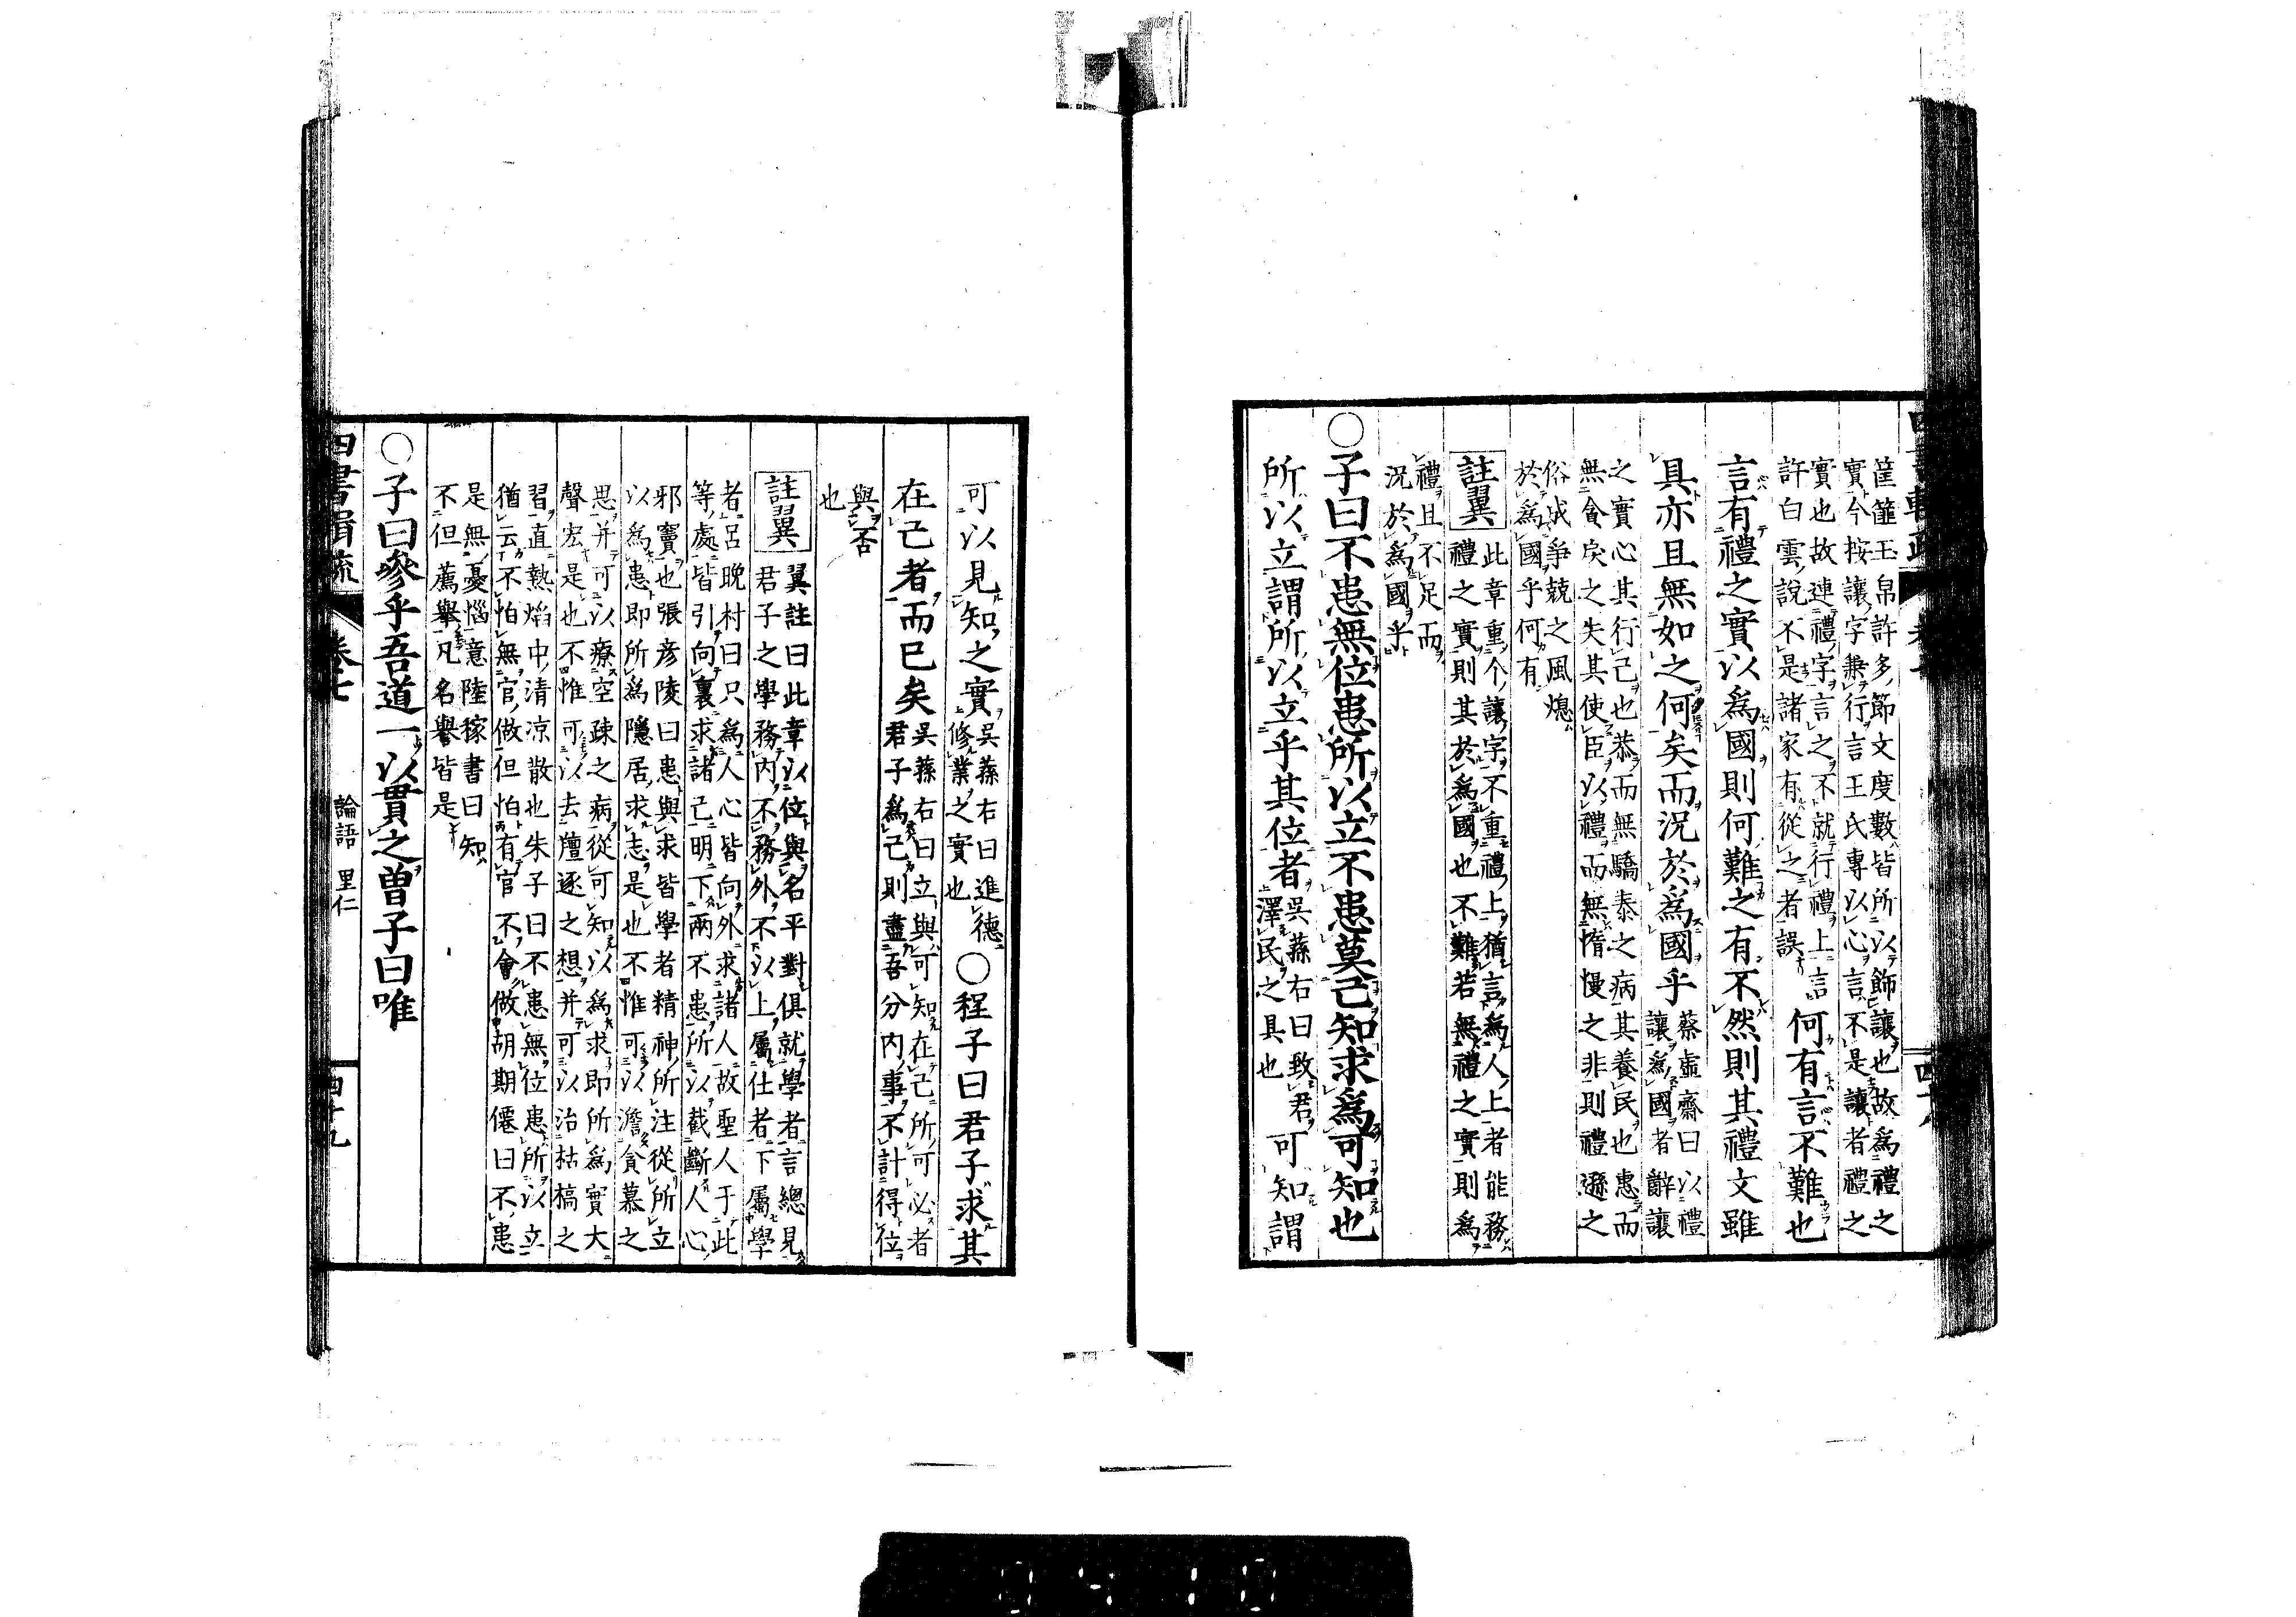 筐篚玉帛許多節文度數皆所以飾讓也故爲禮之
實今按讓字兼行言王氏專以心言不是讓者禮之
實也故連禮字言之不就行禮上言
許白雲說不是諸家有從之者誤
何有言不難也
言有禮之實以爲國則何難之有不然則其禮文雖
具亦且無如之何矣而況於爲國乎
蔡虛齋曰以禮
讓爲國者辭讓
之實心其行己也恭而無驕泰之病其養民也惠而
無貪戾之失其使臣以禮而無惰慢之非則禮遜之
俗成爭競之風熄
於爲國乎何有
註翼
此章重个讓字不重禮上猶言爲人上者能務
禮之實則其於爲國也不難若無禮之實則爲
禮且不足而
況於爲國乎
○子曰不患無位患所以立不患莫己知求爲可知也
所以立謂所以立乎其位者
吳蓀右曰致君
澤民之具也
可知謂
可以見知之實
吳蓀右曰進德
修業之實也
○程子曰君子求其
在己者而已矣
吳蓀右曰立與可知在己所可必者
君子爲己則盡吾分內事不計得位
與否
也
註翼
翼註曰此章以位與名平對俱就學者言總見
君子之學務內不務外不以上屬仕者下屬學
者呂晚村曰只爲人心皆向外求諸人故聖人于此
等處皆引向裏求諸己明下兩不患所以截斷人心
邪竇也張彥陵曰患與求皆學者精神所注從所立
以爲患即所爲隱居求志是也不惟可以澹貪慕之
思并可以療空疎之病從可知以爲求即所爲實大
聲宏是也不惟可以去羶逐之想并可以治枯槁之
習直熱焰中清涼散也朱子曰不患無位患所以立
猶云不怕無官做但怕有官不會做胡期僊曰不患
是無憂惱意陸稼書曰知
不但薦舉凡名譽皆是
○子曰參乎吾道一以貫之曾子曰唯
四書輯疏
卷七
論語
里仁
四十九